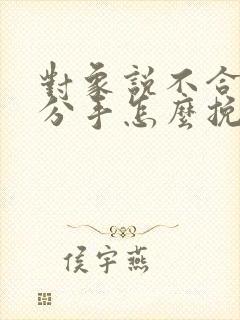 對象說不合
分手怎麼挽
侯宇燕